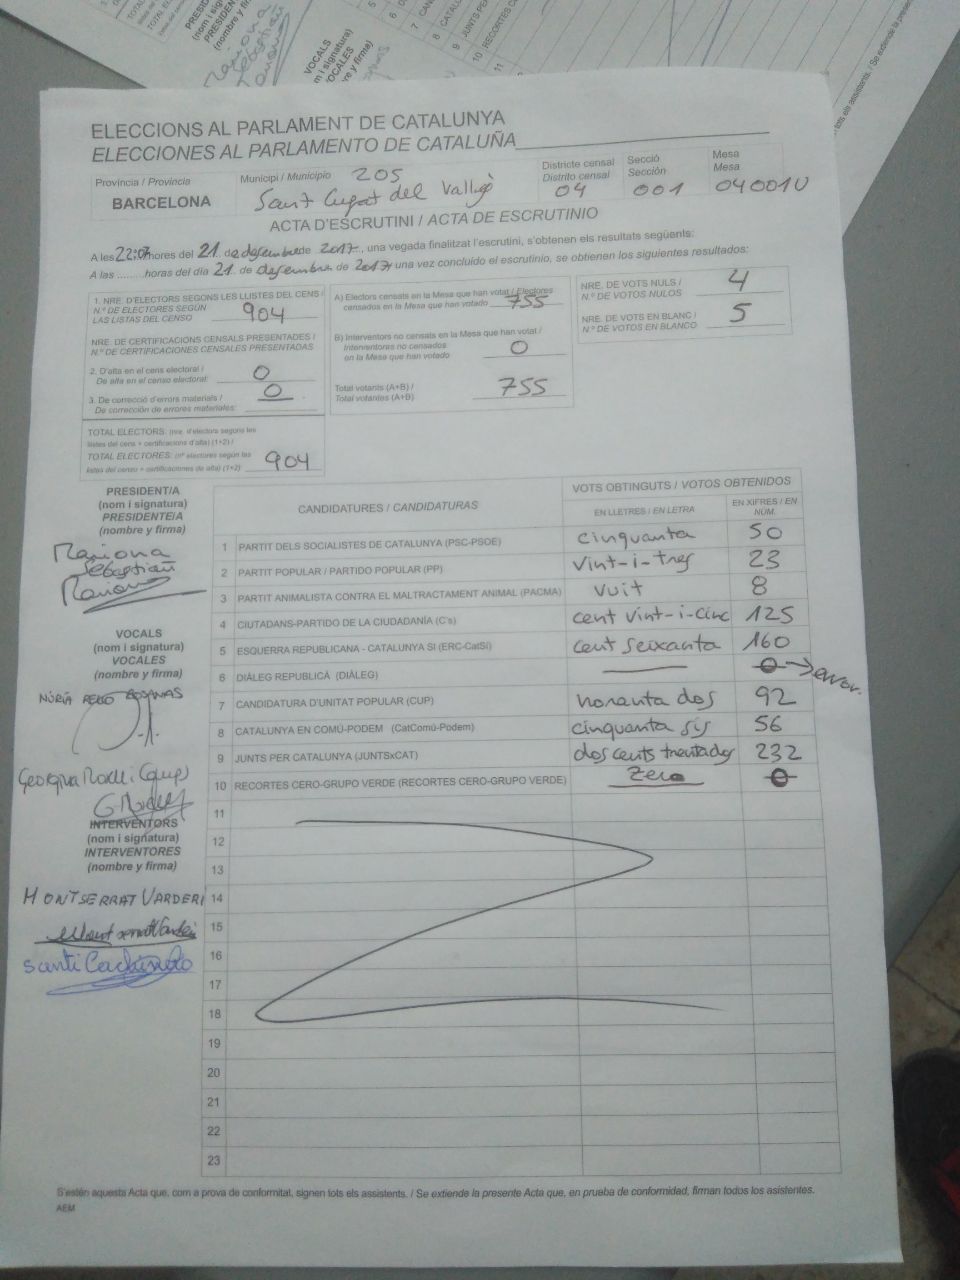 ELECCIONS AL PARLAMENT DE CATALUNYA
ELECCIONES AL PARLAMENTO DE CATALUÑA
Província / Provincia
BARCELONA
Municipi / Municipio 205
Sant Cugat del Vallès
Districte censal
Distrito censal
04
Secció
Sección
001
Mesa
Mesa
04001U
ACTA D'ESCRUTINI / ACTA DE ESCRUTINIO
A les 22:07 hores del 21 de desembre de 2017, una vegada finalitzat l'escrutini, s'obtenen els resultats següents:
A las ........horas del día 21 de desembre de 2017 una vez concluido el escrutinio, se obtienen los siguientes resultados:
1. NRE. D'ELECTORS SEGONS LES LLISTES DEL CENS /
N.º DE ELECTORES SEGÚN
LAS LISTAS DEL CENSO 904
NRE. DE CERTIFICACIONS CENSALS PRESENTADES /
N.º DE CERTIFICACIONES CENSALES PRESENTADAS
2. D'alta en el cens electoral /
De alta en el censo electoral: 0
3. De correcció d'errors materials /
De corrección de errores materiales: 0
TOTAL ELECTORS: (nre. d'electors segons les
llistes del cens + certificacions d'alta) (1+2) /
TOTAL ELECTORES: (nº electores según las
listas del censo + certificaciones de alta) (1+2) 904
A) Electors censats en la Mesa que han votat / Electores
censados en la Mesa que han votado 755
B) Interventors no censats en la Mesa que han votat /
Interventores no censados
en la Mesa que han votado 0
Total votants (A+B) /
Total votantes (A+B) 755
NRE. DE VOTS NULS /
N.º DE VOTOS NULOS 4
NRE. DE VOTS EN BLANC /
N.º DE VOTOS EN BLANCO 5
PRESIDENT/A
(nom i signatura)
PRESIDENTE/A
(nombre y firma)
Mariona
Sebastián
VOCALS
(nom i signatura)
VOCALES
(nombre y firma)
NÚRIA
Georgina
INTERVENTORS
(nom i signatura)
INTERVENTORES
(nombre y firma)
MONTSERRAT VARDERI
Santi
CANDIDATURES / CANDIDATURAS
VOTS OBTINGUTS / VOTOS OBTENIDOS
EN LLETRES / EN LETRA
EN XIFRES / EN NÚM.
1 PARTIT DELS SOCIALISTES DE CATALUNYA (PSC-PSOE) cinquanta 50
2 PARTIT POPULAR / PARTIDO POPULAR (PP) Vint-i-tres 23
3 PARTIT ANIMALISTA CONTRA EL MALTRACTAMENT ANIMAL (PACMA) vuit 8
4 CIUTADANS-PARTIDO DE LA CIUDADANÍA (C's) cent vint-i-cinc 125
5 ESQUERRA REPUBLICANA - CATALUNYA SI (ERC-CatSí) cent seixanta 160
6 DIÀLEG REPUBLICÀ (DIÀLEG) 0 → error.
7 CANDIDATURA D'UNITAT POPULAR (CUP) noranta dos 92
8 CATALUNYA EN COMÚ-PODEM (CatComú-Podem) cinquanta sis 56
9 JUNTS PER CATALUNYA (JUNTSxCAT) dos cents trenta dos 232
10 RECORTES CERO-GRUPO VERDE (RECORTES CERO-GRUPO VERDE) Zero 0
11
12
13
14
15
16
17
18
19
20
21
22
23
S'estén aquesta Acta que, com a prova de conformitat, signen tots els assistents. / Se extiende la presente Acta que, en prueba de conformidad, firman todos los asistentes.
AEM